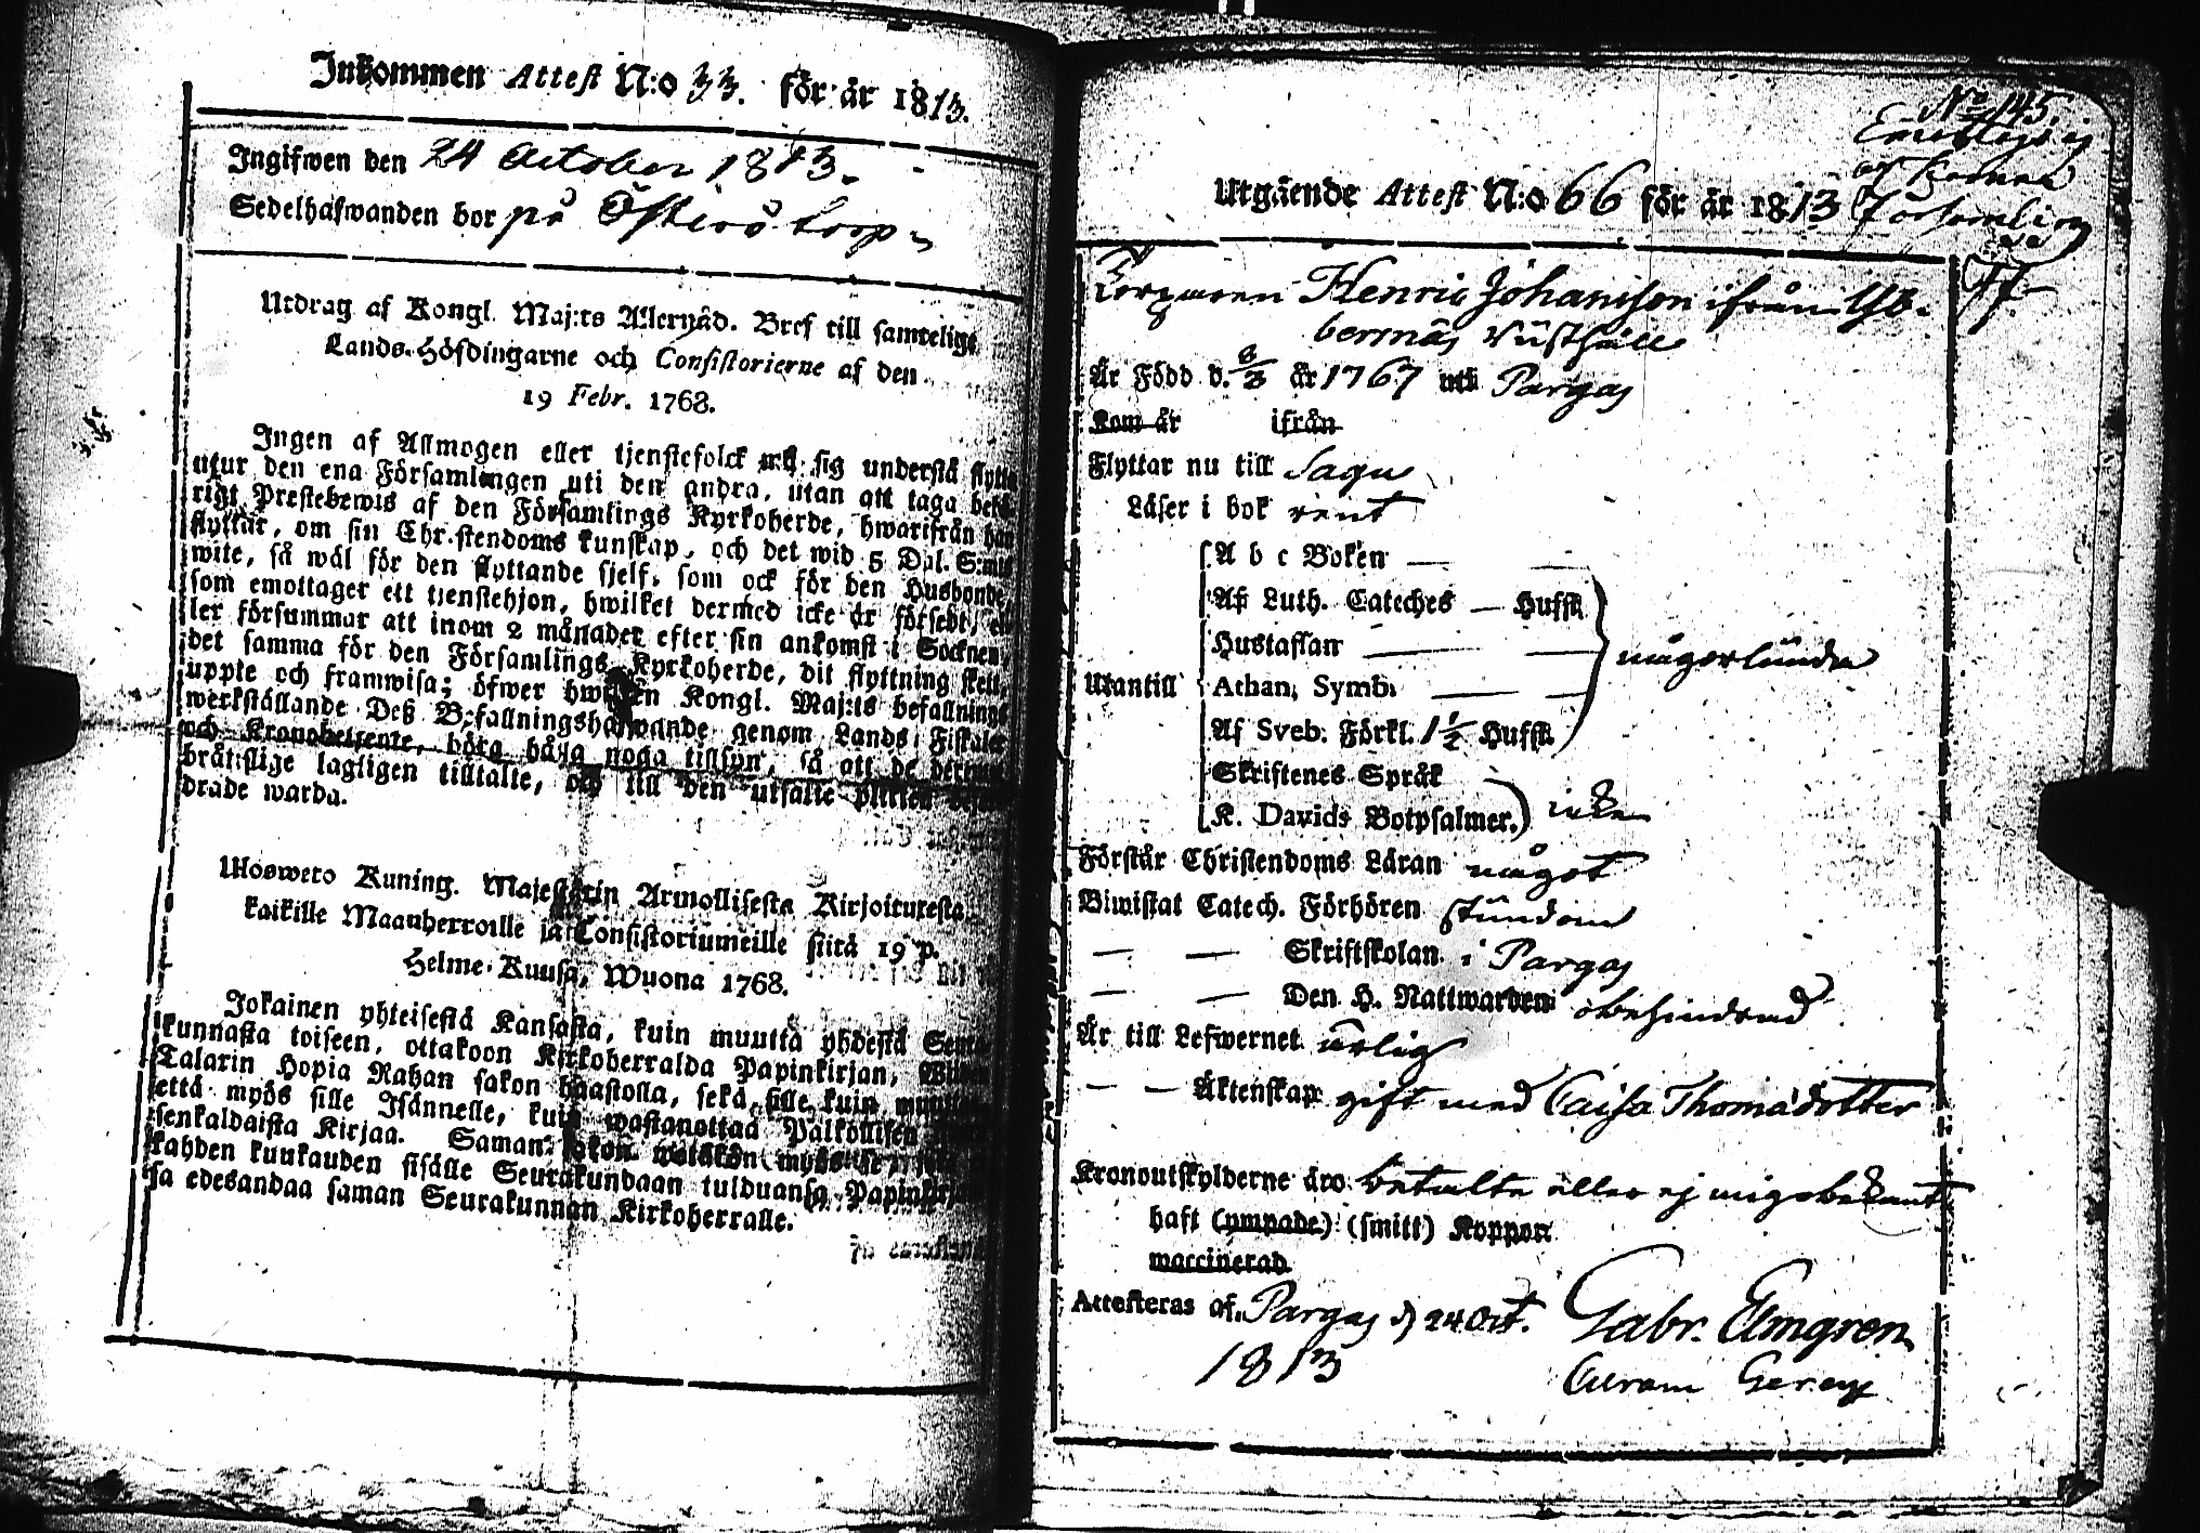 Inkommen Attest N:o 33. för år 1813.
Ingifwen den 24 October 1813.
Sedelhafwanden bor på Österö torp
Utdrag af Kongl. Maj:ts Allernåd. Bref till samtelige
Lands-Höfdingarne och Consistorierne af den
19 Febr. 1768.
Ingen af Allmogen eller tjenstefolck må sig understå flytta
utur den ena Församlingen uti den andra, utan att taga behö-
rigt Prestebewis af den Församlings Kyrkoherde, hwarifrån han
flyttar, om sin Christendoms kunskap, och det wid 5 Dal. S:mts
wite, så wäl för den flyttande sjelf, som ock för den Husbonde,
som emottager ett tjenstehjon, hwilket dermed icke är försedt, el-
ler försummar att inom 2 månader efter sin ankomst i Socknen,
det samma för den Församlings Kyrkoherde, dit flyttning skett,
uppte och framwisa; öfwer hwilken Kongl. Maj:ts befallnings
werkställande Deß Befallningshafwande genom Lands Fiskaler
och Kronobetjente, böra hålla noga tillsyn, så att de dermed
bråtslige lagligen tilltalte, och till den utsatte plickten
drade warda.
Uloswero Kuning. Majestetin Armollisesta Kirjoituresta
kaikille Maanherroille ja Consistoriumeille siitä 19 p.
Helme-Kuusa, Wuona 1768.
Jokainen yhteisestä Kansasta, kuin muutta yhdestä Seura-
kunnasta toiseen, ottakoon Kirkoherralda Papinkirjan, Wiiden
Talarin Hopia Rahan sakon haastolla, sekä sille kuin muutta
että myös sille Isännelle, kuin wastanottaa Palkollisen
senkaldaista Kirjaa. Saman sakon wetäkön myös se,
kahden kuukauden sisälle Seurakundaan tulduansa Papinkirjan
sa edesandaa saman Seurakunnan Kirkoherralle.
N:o 145.
Församling
Utgående Attest N:o 66 för år 1813
Torparen Henric Johansson ifrån Yb-
bernäs Rusthåll
Är Född d. 8/3 år 1767 uti Pargas
Kom år ifrån
Flyttar nu till Sagu
Läser i bok rent
A b c Boken
Af Luth. Cateches — Hufst.
Hustaflan
någorlunda
Utantill
Athan. Symb.
Af Sveb. Förkl. 1 1/2 Hufst.
Skriftenes Språk
K. Davids Botpsalmer. icke
Förstår Christendoms Läran något
Biwistat Catech. Förhören stundom
— — Skriftskolan i Pargas
— — Den H. Nattwarden obehindrad
Är till Lefwernet ärlig
— — Äktenskap gift med Caisa Thomädotter
Kronoutskylderne äro betalte eller ej mig obekant
haft (ympade) (smitt) Koppor
waccinerad
Attesteras af. Pargas d 24 Oct. Gabr. Elmgren
1813